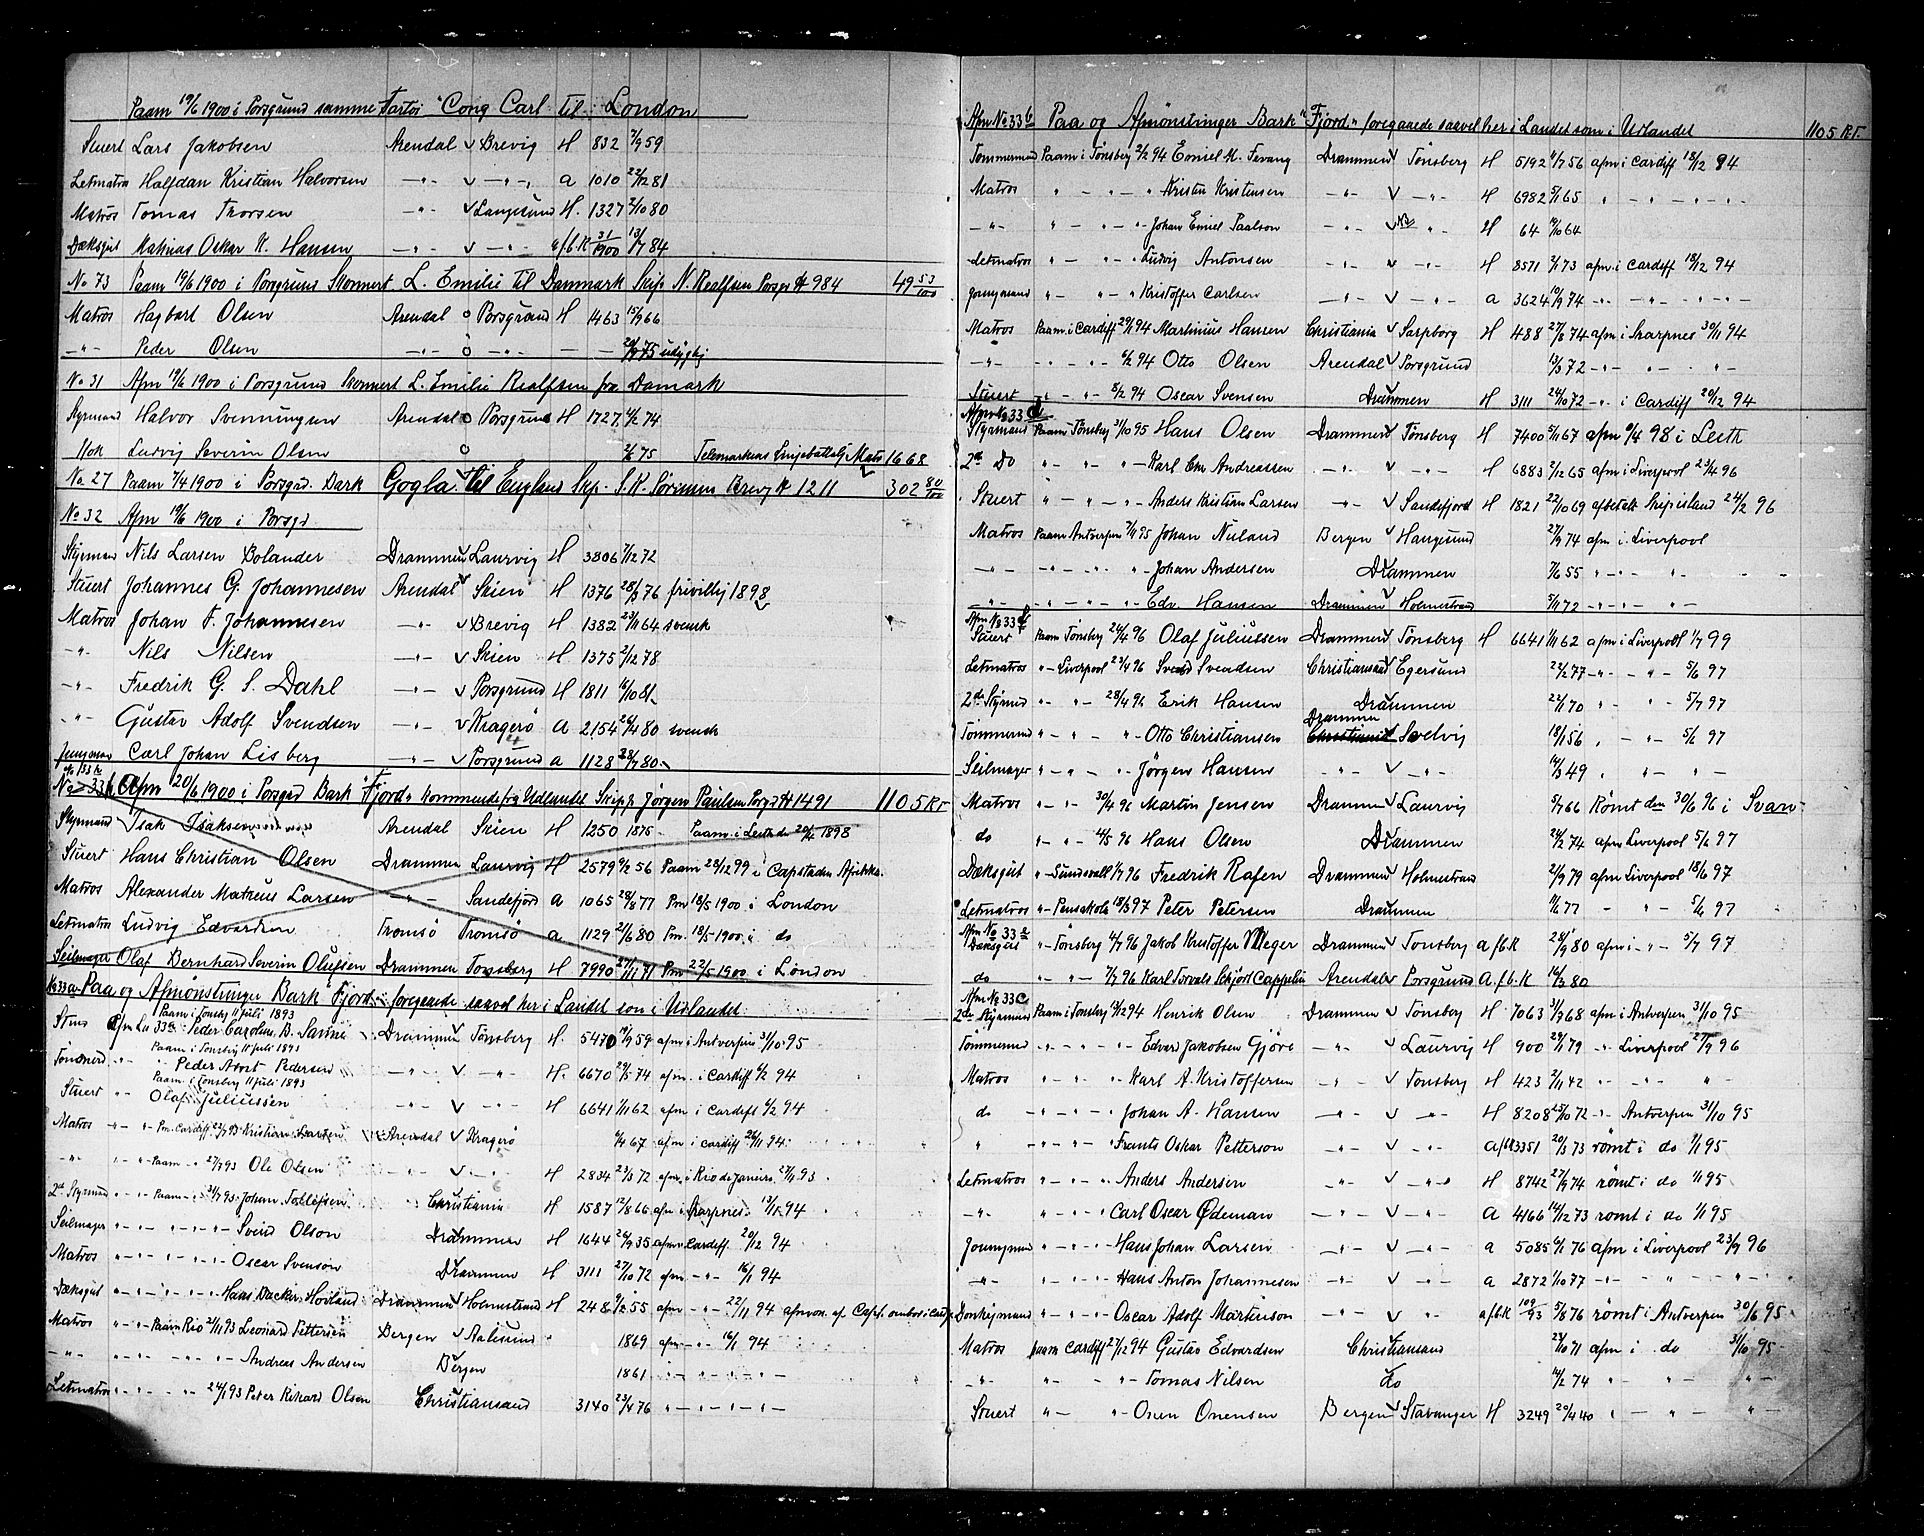 Paam 19/6 1900 i Porsgrund samme Fartøi "Cong Carl til London
Stuert Lars Jakobsen Arendal v Brevig H 832 2/9 59
Letmatros Halfdan Kristian Halvorsen -"- v -"- a 1010 22/12 81
Matros Tomas Thorsen -"- v Langesund H. 1327 2/10 80
Dæksgut Mathias Oskar K. Hansen -"- v -"- a f.b.R 31/1900 13/7 84
No 73 Paam 19/6 1900 i Porsgrund Skonnert L. Emilie til Danmark Skip. N. Realfsen Porsgr H 984 49 53/100
Matros Hagbart Olsen Arendal o Porsgrund H 1463 15/9 66
-"- Peder Olsen -"- o -"- — — 75 udygtig
No 31 Afm 19/6 1900 i Porsgrund Skonnert L. Emilie Realfsen fra Damark
Styrmand Halvor Svenningsen Arendal o Porsgrund H 1727 4/2 74
Kok Ludvig Severin Olsen o 75 Telemarkens Linjebattalj Matr 1668
No. 27 Paam 7/4 1900 i Porsgrd. Bark Gogla til England Skp. S. K. Sørensen Brevg H 1211 302 80/100
No 32 Afm 19/6 1900 i Porsgr
Styrmand Nils Larsen Bolander Drammen v Laurvig H 3806 7/12 72
Stuert Johannes G. Johannesen Arendal v Skien H 1376 28/3 76 frivillig 1898
Matros Johan F. Johannesen -"- v Brevig H 1382 23/11 64 svensk
-"- Nils Nilsen -"- v Skien H 1375 2/12 78
-"- Fredrik G. S. Dahl -"- v Porsgrund H 1811 16/10 81
-"- Gustav Adolf Svendsen -"- v Kragerø A 2154 26/4 80 svensk
Jungmand Carl Johan Lisberg -"- v Porsgrund a 1128 28/7 80
No 33 Afm 20/6 1900 i Porsgrd Bark "Fjord" kommende fra Udlandet Skip. Jørgen Paulsen Porsg H 1491 1105 RT.
Styrmand Isak Isaksen Arendal Skien H 1250 1875 Paam. i Leith de 20/4 1898
Stuert Hans Christian Olsen Drammen Laurvig H 2579 9/2 56 Paam 28/12 99 i Capstaden Afrikka.
Matros Alexander Matheus Larsen -"- Sandefjord A 1065 28/8 77 Pm 18/5 1900 i London
Letmatros Ludvig Edvardsen Tromsø Tromsø a 1129 21/6 80 Pm. 18/5 1900 i do
Seilmager Olaf Bernhard Severin Olufsen Drammen Tønsberg H 7990 27/11 71 Pm 22/5 1900 i London
No 33 a Paa og Afmønstringer Bark Fjord - foregaaede saavel her i Landet som i Udlandet.
Paam i Tønsbg 11 Juli 1893
Peder Caroline B. Drammen v Tønsberg H. 5470 19/9 59 afm i Antverpen 31/10 95
Paam i Tønsberg 11 Juli 1893
Peder Pedersen -"- v -"- H. 6670 29/5 74 afm. i Cardiff 6/2 94
Paam i Tønsberg 11 Juli 1893
Stuert -"- Olaf Juliussen -"- v -"- H 6641 1/11 62 afm i Cardiff 6/2 94
Matros -"- Pm Cardiff 22/7 93 Kristian Arendal v Kragerø 67 afm i Cardiff 26/11 94.
-"- Paam 27/7 93 Ole Olsen -"- v -"- H 2834 23/3 72 afm. i Rio de Janeiro 27/11 93
2de Styrmand -"- Paam 31/7 93 Johan Tollefsen Christiania H 1587 12/8 66 afm i Skarpnes 13/1 94
Seilmager -"- Svend Olson Drammen H 1644 26/9 35 afm i Cardiff 20/12 94
Matros -"- Oscar Svenson Drammen H 3111 27/10 72 afm -"- 16/1 94
Dæksgut -"- Hans Backer Hovland Drammen v Holmestrand H 248 9/12 55 afm -"- 22/11 94
Matros -"- Paam Rio 21/11 93 Leonard Pettersen Bergen v Aalesund 1869 afm -"- 16/1 94
-"- Andreas Andersen Bergen 1861 -"-
Letmatros -"- 24/1 93 Peter Rikard Olsen Christiansand 3140 23/4 76 -"-
Afm No 33 b Paa og Afmønstringer Bark "Fjord" foregaaede saavel her i Landet som i Udlandet 1105 RT.
Tømmermand Paam i Tønsberg 2/2 94 Emiel M. Fevang Drammen v Tønsberg H 5192 11/7 56 afm i Cardiff 18/12 94
Matros -"- Kristen Kristensen -"- v -"- H 6982 5/1 65 -"-
-"- Johan Emiel Paalson -"- v -"- H 64 19/10 64
Letmatros -"- Ludvig Antonsen -"- v -"- H 8571 2/1 73 afm i Cardiff 18/12 94
Jungmand -"- Kristoffer Carlsen -"- v -"- a 3624 10/9 74 -"-
Matros Paam i Cardiff 29/1 94 Martinius Hansen Christiania v Sarpborg H 488 27/8 74 afm i Skarpnes 30/11 94
-"- 6/2 94 Otto Olsen Arendal v Porsgrund 13/3 72 -"-
Stuert -"- 8/2 94 Oscar Svensen Drammen H 3111 24/10 72 -"- i Cardiff 20/12 94
Afm No 33 d
Styrmand Paam Tønsberg 31/10 95 Hans Olsen Drammen v Tønsberg H 7400 5/11 67 afm 9/4 98 i Leith
2de Do -"- Karl Chr Andreassen -"- v -"- H 6883 2/12 65 afm i Liverpool 23/4 96
Stuert -"- Anders Kristian Larsen -"- v Sandefjord H 1821 22/10 69 afbetalt Skip island 24/2 96
Matros Paam Antverpen 7/11 95 Johan Nuland Bergen v Haugesund 27/9 74 afm i Liverpool
-"- Johan Andersen Drammen 7/6 55 -"-
-"- Edv. Hansen Drammen v Holmestrand 5/11 72 -"-
Afm No 33
Stuert Paam Tønsberg 24/4 96 Olaf Juliussen Drammen v Tønsberg H 6641 1/11 62 afm i Liverpool 1/7 99
Letmatros -"- Liverpool 23/4 96 Svend Svendsen Christiansand v Egersund 22/2 77 -"- 5/6 97
2de Styrmd -"- 28/4 96 Erik Hansen Drammen 22/1 70 -"- 5/7 97
Tømmermd -"- Otto Christiansen Drammen Svelvig 18/1 56 -"- 5/6 97
Seilmager -"- Jørgen Hansen -"- v -"- 14/3 49 -"-
Matros -"- 30/4 96 Martin Jensen Drammen v Laurvig 5/7 66 Rømt den 30/6 96 i Svan-
do -"- 4/5 96 Hans Olsen Drammen 24/2 74 afm Liverpool 5/6 97
Dæksgut -"- Sundsvall 1/7 96 Fredrik Rafen Drammen v Holmestrand 21/9 79 afm Liverpool 15/6 97
Letmatros -"- Pensakola 18/3 97 Peter Petersen Drammen 11/6 77 -"- 5/6 97
Afm No 33
Dæksgut -"- Tønsberg 4/7 96 Jakob Kristoffer Meger Drammen v Tønsberg a f.b.R 24/9 80 afm i -"- 5/7 97
do -"- 7/7 96 Karl Torvald Schjord Cappelin Arendal v Porsgrund A.f.b.R 16/2 80
Afm No 33 c
2de Styrmand Paam i Tønsberg 12/12 94 Henrik Olsen Drammen v Tønsberg H 7063 31/7 68 afm i Antverpen 31/10 95
Tømmermd -"- Edvard Jakobsen Gjøve -"- v Laurvig H 900 29/11 79 -"- Liverpool 27/9 96
Matros -"- Karl A. Kristoffersen -"- v Tønsberg H 423 2/11 42 -"-
do -"- Johan A. Hansen -"- v -"- H 8208 25/10 72 -"- Antverpen 31/10 95
" -"- Frants Oskar Petterson -"- v -"- a f.b.R 3351 20/3 73 rømt i do 1/11 95
Letmatros -"- Anders Andersen -"- v -"- H 8742 27/9 74 rømt i do 1/11 95
-"- Carl Oscar Ødeman -"- v -"- A 4166 14/12 73 rømt i do 1/11 95
Joungmand -"- Hans Johan Larsen -"- v -"- a 5085 6/1 76 afm i Liverpool 23/9 96
-"- Hans Anton Johannesen -"- v -"- a 2872 1/10 77 -"-
Donkeymand -"- Oscar Adolf Martinson -"- v -"- a f.b.R 109/93 5/8 76 rømt i Antverpen 30/10 95
Matros paam Cardiff 27/12 94 Gustav Edvardsen Christiansand 24/10 71 afm i do 31/10 95
-"- Tomas Nilsen do 14/2 74 -"-
Stuert -"- Onen Onensen Bergen v Stavanger H 3249 20/4 40 -"-